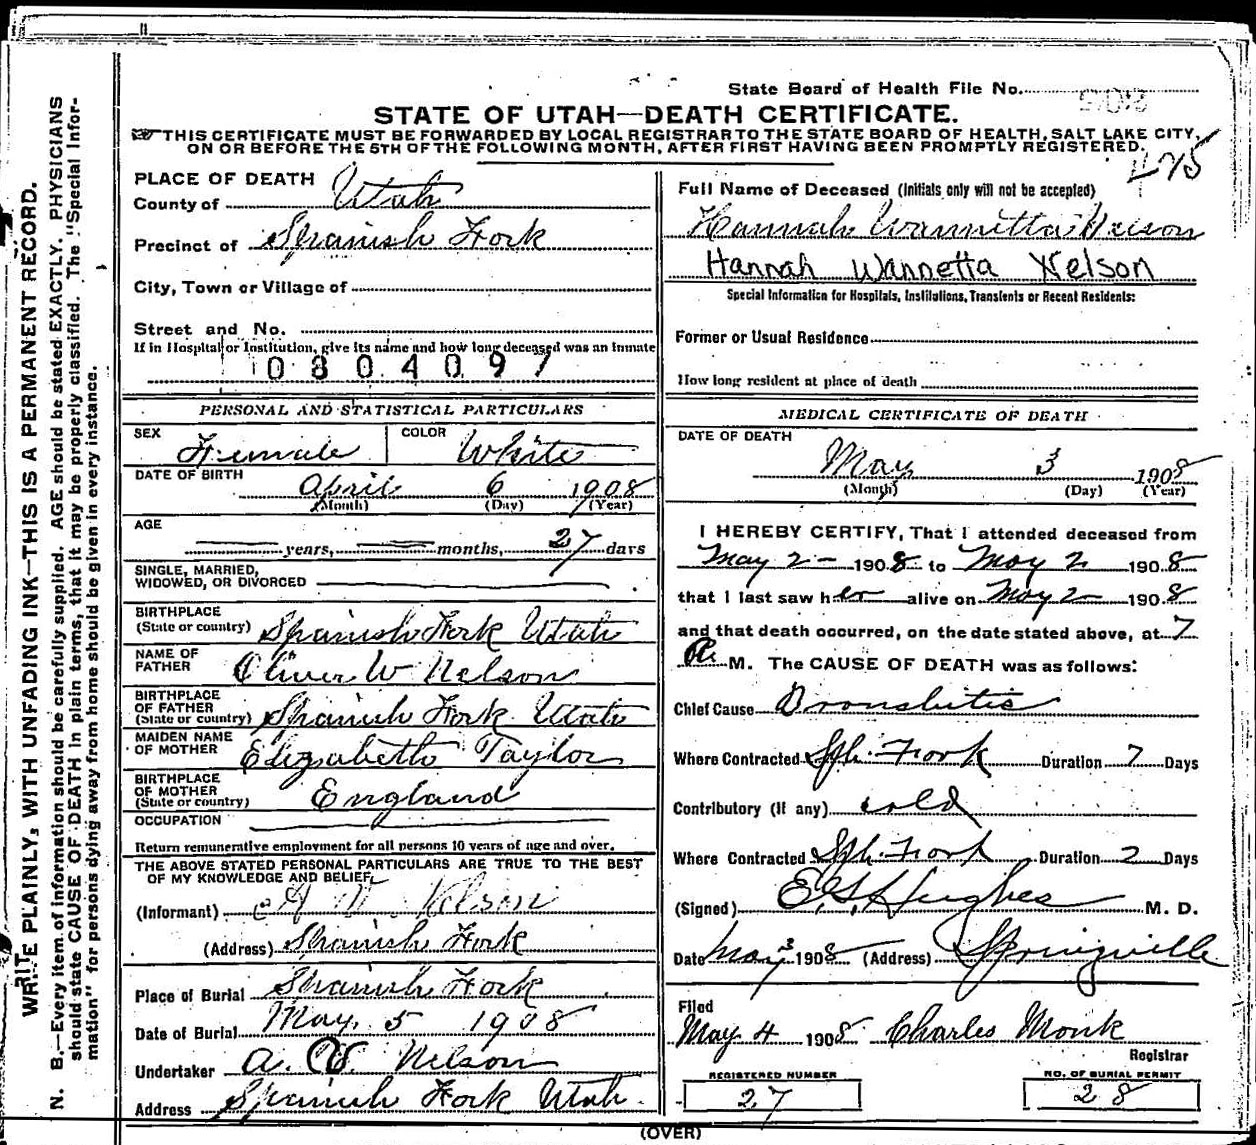 State Board of Health File No.
STATE OF UTAH—DEATH CERTIFICATE.
THIS CERTIFICATE MUST BE FORWARDED BY LOCAL REGISTRAR TO THE STATE BOARD OF HEALTH, SALT LAKE CITY,
ON OR BEFORE THE 5TH OF THE FOLLOWING MONTH, AFTER FIRST HAVING BEEN PROMPTLY REGISTERED.
475
WRITE PLAINLY, WITH UNFADING INK—THIS IS A PERMANENT RECORD.
N. B.—Every item of information should be carefully supplied. AGE should be stated EXACTLY. PHYSICIANS
should state CAUSE OF DEATH in plain terms, that it may be properly classified. The "Special Infor-
mation" for persons dying away from home should be given in every instance.
PLACE OF DEATH
County of Utah
Precinct of Spanish Fork
City, Town or Village of
Street and No.
If in Hospital or Institution, give its name and how long deceased was an inmate
0804097
PERSONAL AND STATISTICAL PARTICULARS
SEX Female COLOR White
DATE OF BIRTH
April 6 1908
(Month) (Day) (Year)
AGE
years, months, 27 days
SINGLE, MARRIED,
WIDOWED, OR DIVORCED
BIRTHPLACE
(State or country) Spanish Fork Utah
NAME OF
FATHER Oliver W Nelson
BIRTHPLACE
OF FATHER
(State or country) Spanish Fork Utah
MAIDEN NAME
OF MOTHER Elizabeth Taylor
BIRTHPLACE
OF MOTHER
(State or country) England
OCCUPATION
Return remunerative employment for all persons 10 years of age and over.
THE ABOVE STATED PERSONAL PARTICULARS ARE TRUE TO THE BEST
OF MY KNOWLEDGE AND BELIEF
(Informant) Nelson
(Address) Spanish Fork
Place of Burial Spanish Fork
Date of Burial May 5 1908
Undertaker A. W. Nelson
Address Spanish Fork Utah.
Full Name of Deceased (Initials only will not be accepted)
Hannah Wannetta Nelson
Hannah Wannetta Nelson
Special Information for Hospitals, Institutions, Transients or Recent Residents:
Former or Usual Residence
How long resident at place of death
MEDICAL CERTIFICATE OF DEATH
DATE OF DEATH
May 3 1908
(Month) (Day) (Year)
I HEREBY CERTIFY, That I attended deceased from
May 2 - 1908 to May 2 1908
that I last saw her alive on May 2 1908
and that death occurred, on the date stated above, at 7
A. M. The CAUSE OF DEATH was as follows:
Chief Cause Bronchitis
Where Contracted Sph. Fork Duration 7 Days
Contributory (if any) cold
Where Contracted Sph. Fork Duration 2 Days
(Signed) E. G. Hughes M. D.
Date May 3 1908 (Address) Springville
Filed
May 4 1908 Charles Monk
Registrar
REGISTERED NUMBER
27
NO. OF BURIAL PERMIT
28
(OVER)